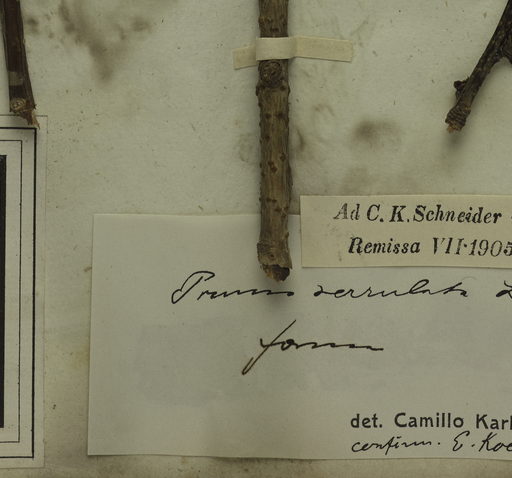 Ad C. K. Schneider
Remissa VII·1905
Prunus serrulata L
forma
det. Camillo Karl
confirm. E. Koe